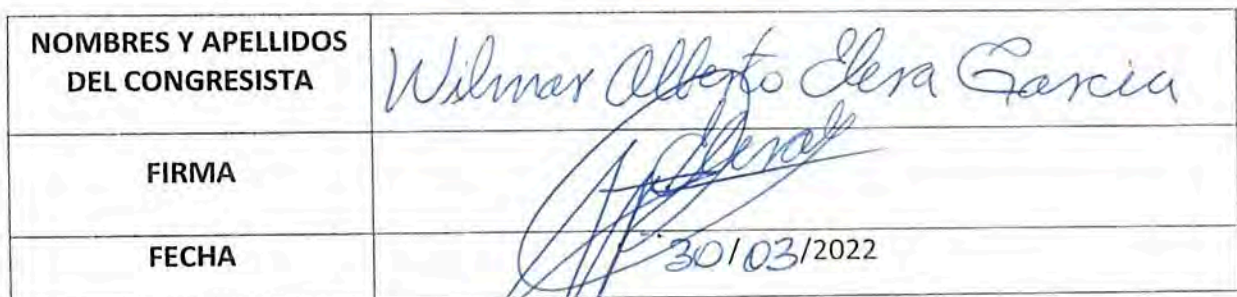 NOMBRES Y APELLIDOS
DEL CONGRESISTA
Wilmar Alberto Elera Garcia
FIRMA
Elera
FECHA
30/03/2022